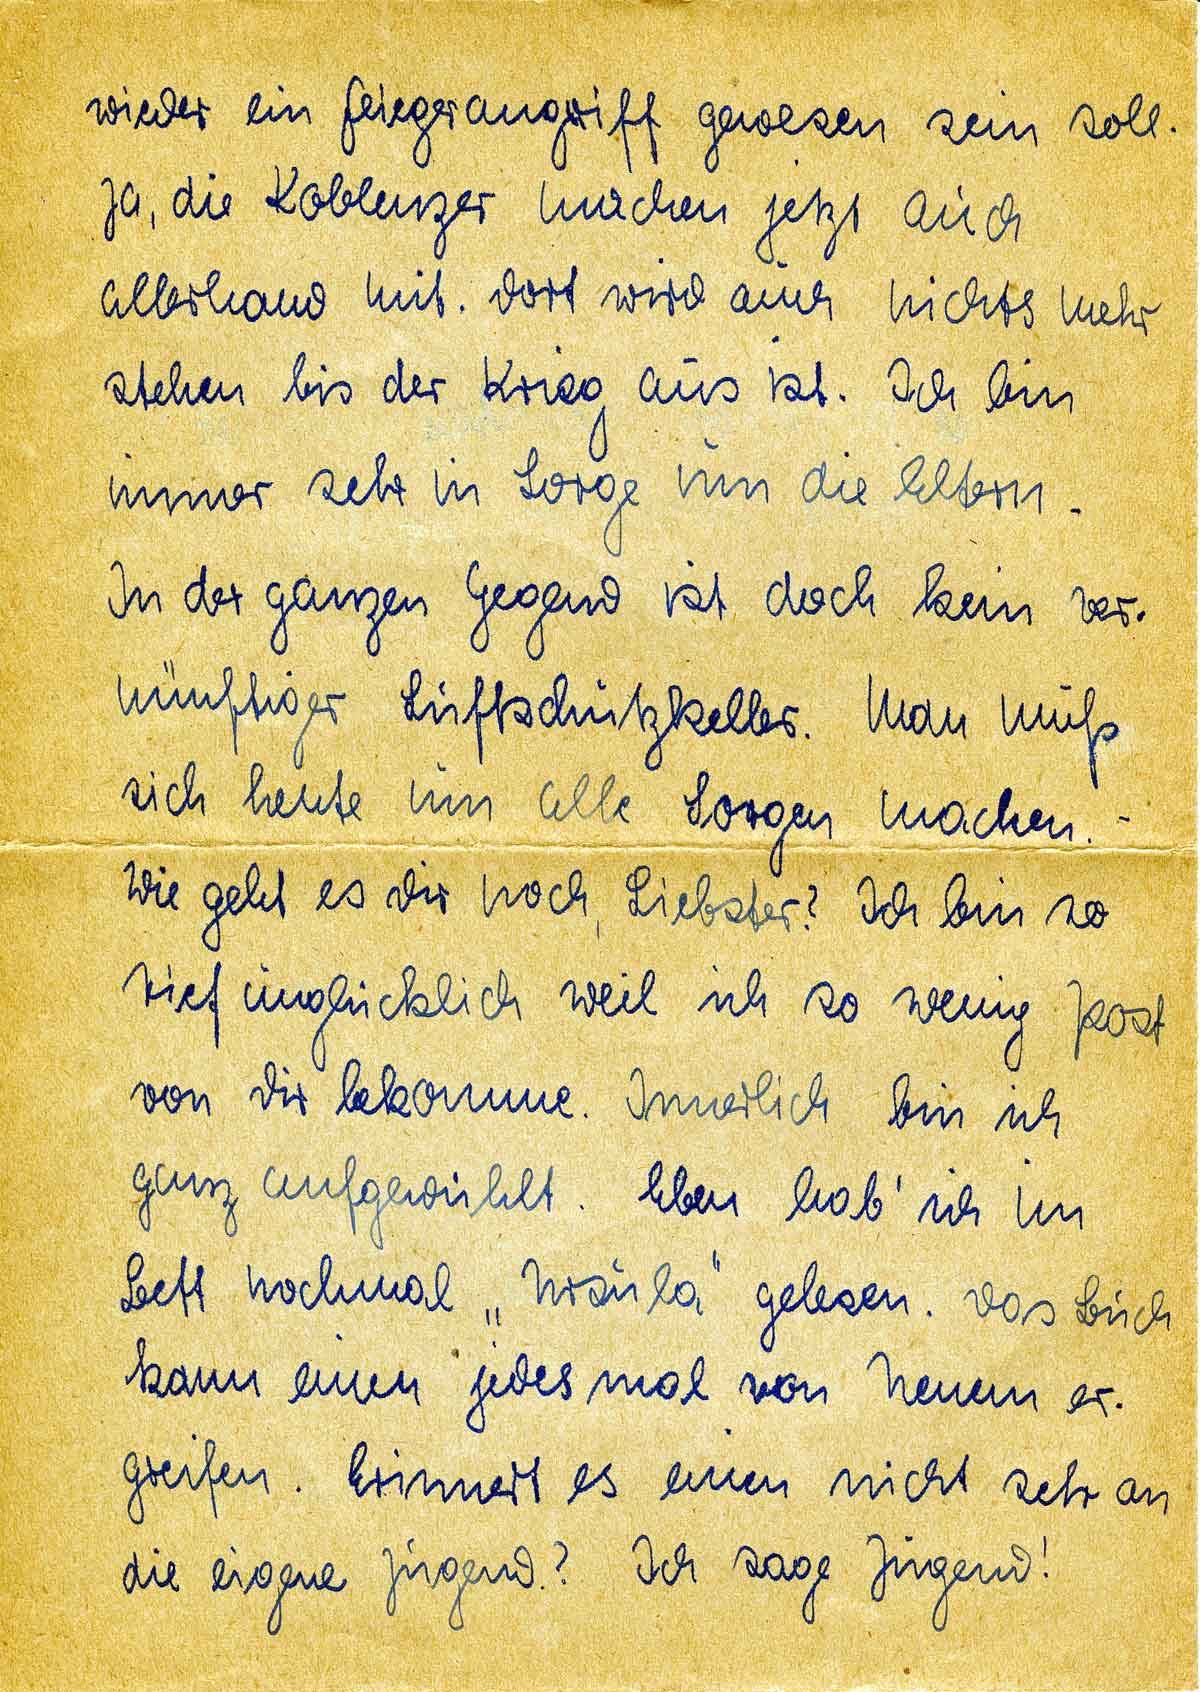 wieder ein Fliegerangriff gewesen sein soll.
Ja, die Koblenzer machen jetzt auch
allerhand mit. Dort wird auch nichts mehr
stehen bis der Krieg aus ist. Ich bin
immer sehr in Sorge um die Eltern.
In der ganzen Gegend ist doch kein ver-
nünftiger Luftschutzkeller. Man muß
sich heute um alle Sorgen machen. -
Wie geht es Dir noch, Liebster? Ich bin so
tief unglücklich weil ich so wenig Post
von Dir bekomme. Innerlich bin ich
ganz aufgewühlt. Eben hab' ich im
Bett nochmal „Ursula“ gelesen. Das Buch
kann einen jedesmal von Neuem er-
greifen. Erinnert es einen nicht sehr an
die eigene Jugend? Ich sage Jugend!